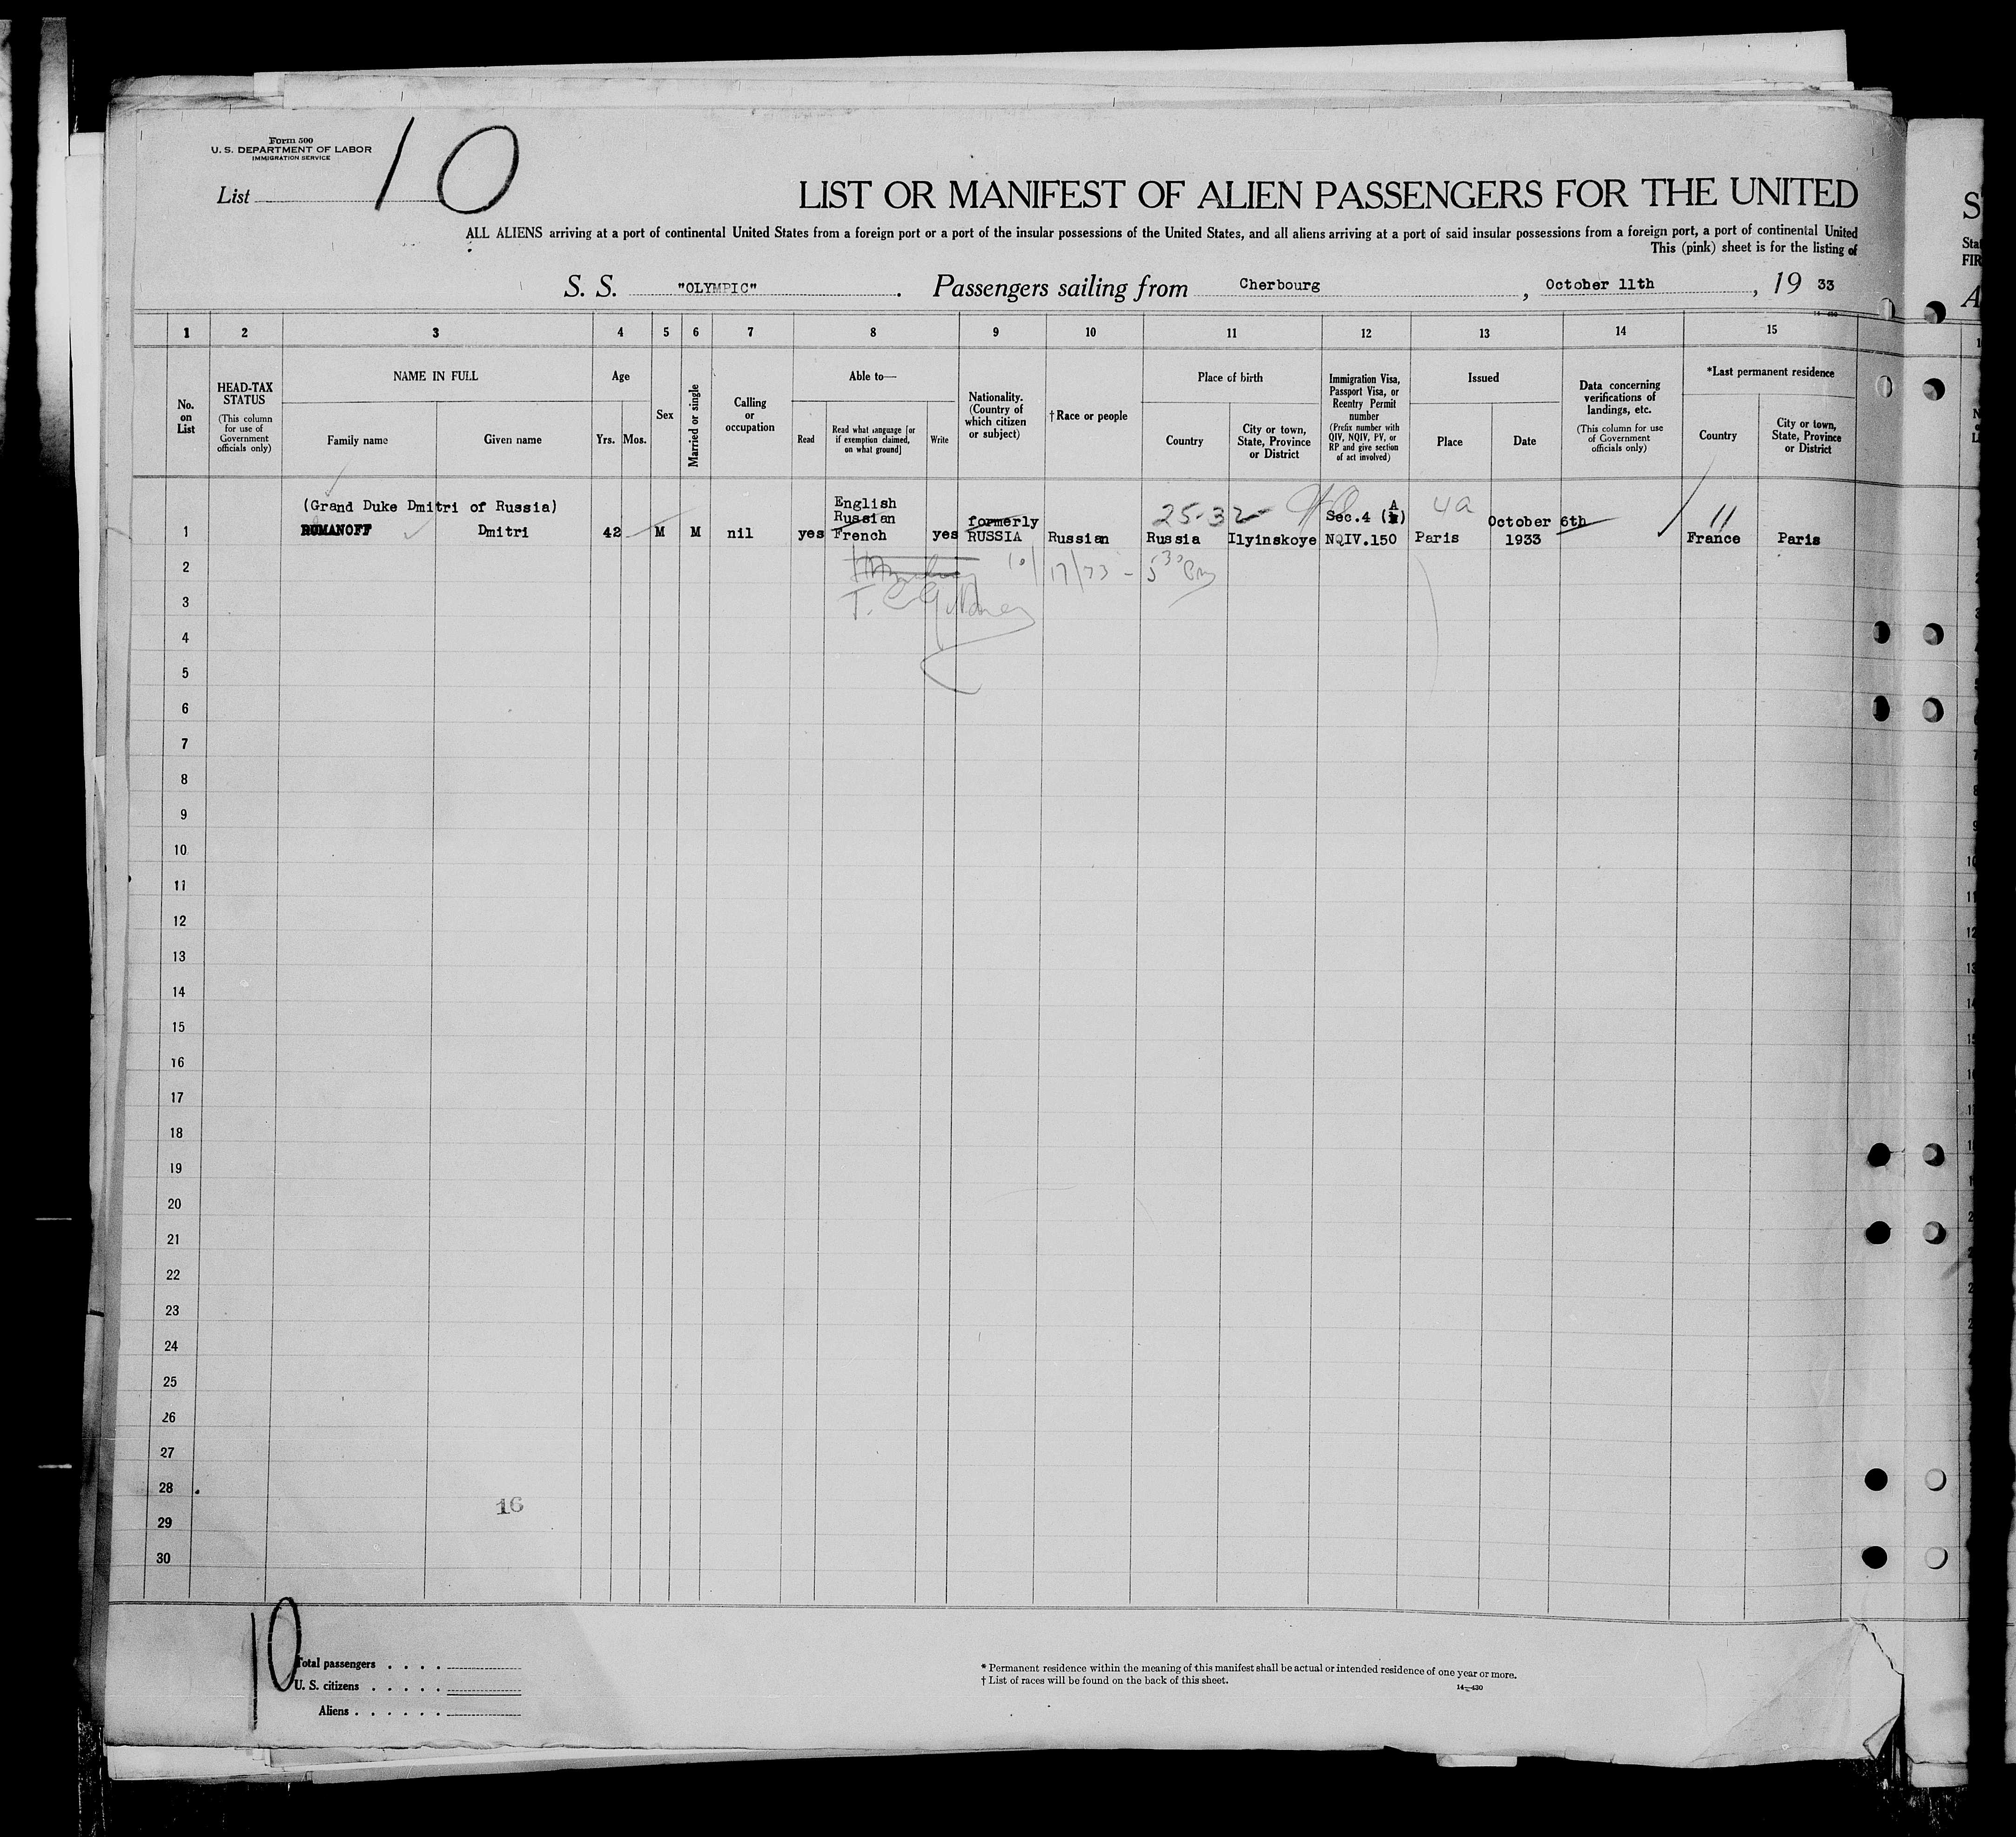 Form 500
U. S. DEPARTMENT OF LABOR
IMMIGRATION SERVICE
List 10
LIST OR MANIFEST OF ALIEN PASSENGERS FOR THE UNITED
ALL ALIENS arriving at a port of continental United States from a foreign port or a port of the insular possessions of the United States, and all aliens arriving at a port of said insular possessions from a foreign port, a port of continental United
This (pink) sheet is for the listing of
S. S. "OLYMPIC". Passengers sailing from Cherbourg, October 11th, 19 33
14-430
1 2 3 4 5 6 7 8 9 10 11 12 13 14 15
No. on List
HEAD-TAX STATUS
(This column for use of Government officials only)
NAME IN FULL
Family name
Given name
Age
Yrs. Mos.
Sex
Married or single
Calling or occupation
Able to—
Read
Read what language [or if exemption claimed, on what ground]
Write
Nationality. (Country of which citizen or subject)
†Race or people
Place of birth
Country
City or town, State, Province or District
Immigration Visa, Passport Visa, or Reentry Permit number
(Prefix number with QIV, NQIV, PV, or RP and give section of act involved)
Issued
Place
Date
Data concerning verifications of landings, etc.
(This column for use of Government officials only)
*Last permanent residence
Country
City or town, State, Province or District
(Grand Duke Dmitri of Russia) English Russian formerly 25-32 Sec.4 (A) 4a October 6th
1 ROMANOFF Dmitri 42 M M nil yes French yes RUSSIA Russian Russia Ilyinskoye NQIV.150 Paris 1933 France Paris
2 10/17/33 - 5 30 Pm
3
4
5
6
7
8
9
10
11
12
13
14
15
16
17
18
19
20
21
22
23
24
25
26
27
28
16
29
30
10
Total passengers
U. S. citizens
Aliens
* Permanent residence within the meaning of this manifest shall be actual or intended residence of one year or more.
† List of races will be found on the back of this sheet.
14-430